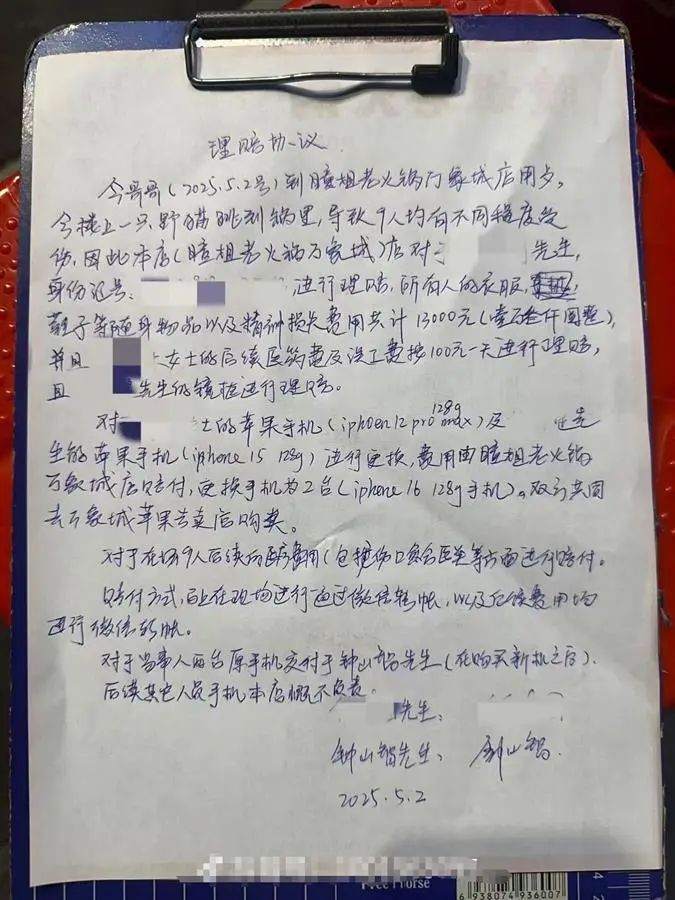 理赔协议
今哥哥(2025.5.2号)到瞳姐老火锅万象城店用歺,
今楼上一只野猫跳到锅里,导致9人均有不同程度受
伤,因此本店(瞳姐老火锅万象城)店对于 先生,
身份证号: 进行理赔,所有人的衣服,
鞋子等随身物品以及精神损失费用共计13000元(壹万叁仟圆整),
并且 女士的后续医药费及误工费按100元一天进行理赔,
且 先生的镜框进行理赔。
对 士的苹果手机(iphoen 12 pro max 128g)及 先
生的苹果手机(iphone 15 128g)进行更换,费用由瞳姐老火锅
万象城店赔付,更换手机为2台(iphone 16 128g手机)。双方共同
去万象城苹果专卖店购买。
对于在场9人后续后 费用(包括伤口愈合医美等方面进行赔付。
赔付方式,已在现场进行通过微信转帐,以及后续费用均
进行微信转帐。
对于当事人两台原手机交付于钟山智先生(在购买新机之后).
后续其它人员手机本店概不负责。
先生:
钟山智先生: 钟山智.
2025.5.2
Free Horse
6 938074 936007